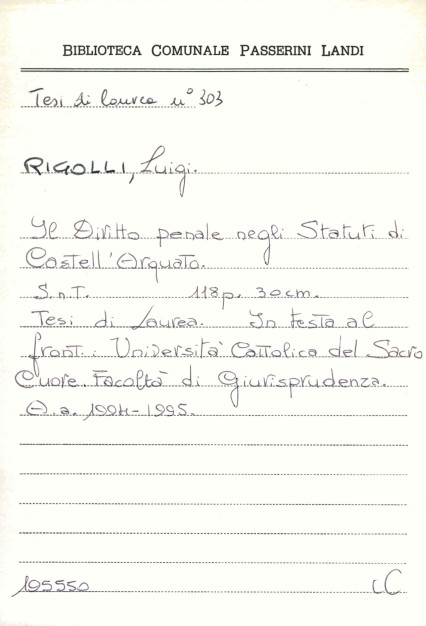 BIBLIOTECA COMUNALE PASSERINI LANDI
Tesi di laurea n° 303
RIGOLLI, Luigi.
Il Diritto penale negli Statuti di
Castell'Arquato.
S.n.T. 118 p. 30 cm.
Tesi di Laurea. In testa al
front.: Università Cattolica del Sacro
Cuore. Facoltà di Giurisprudenza.
A.a. 1994-1995.
195550 LC